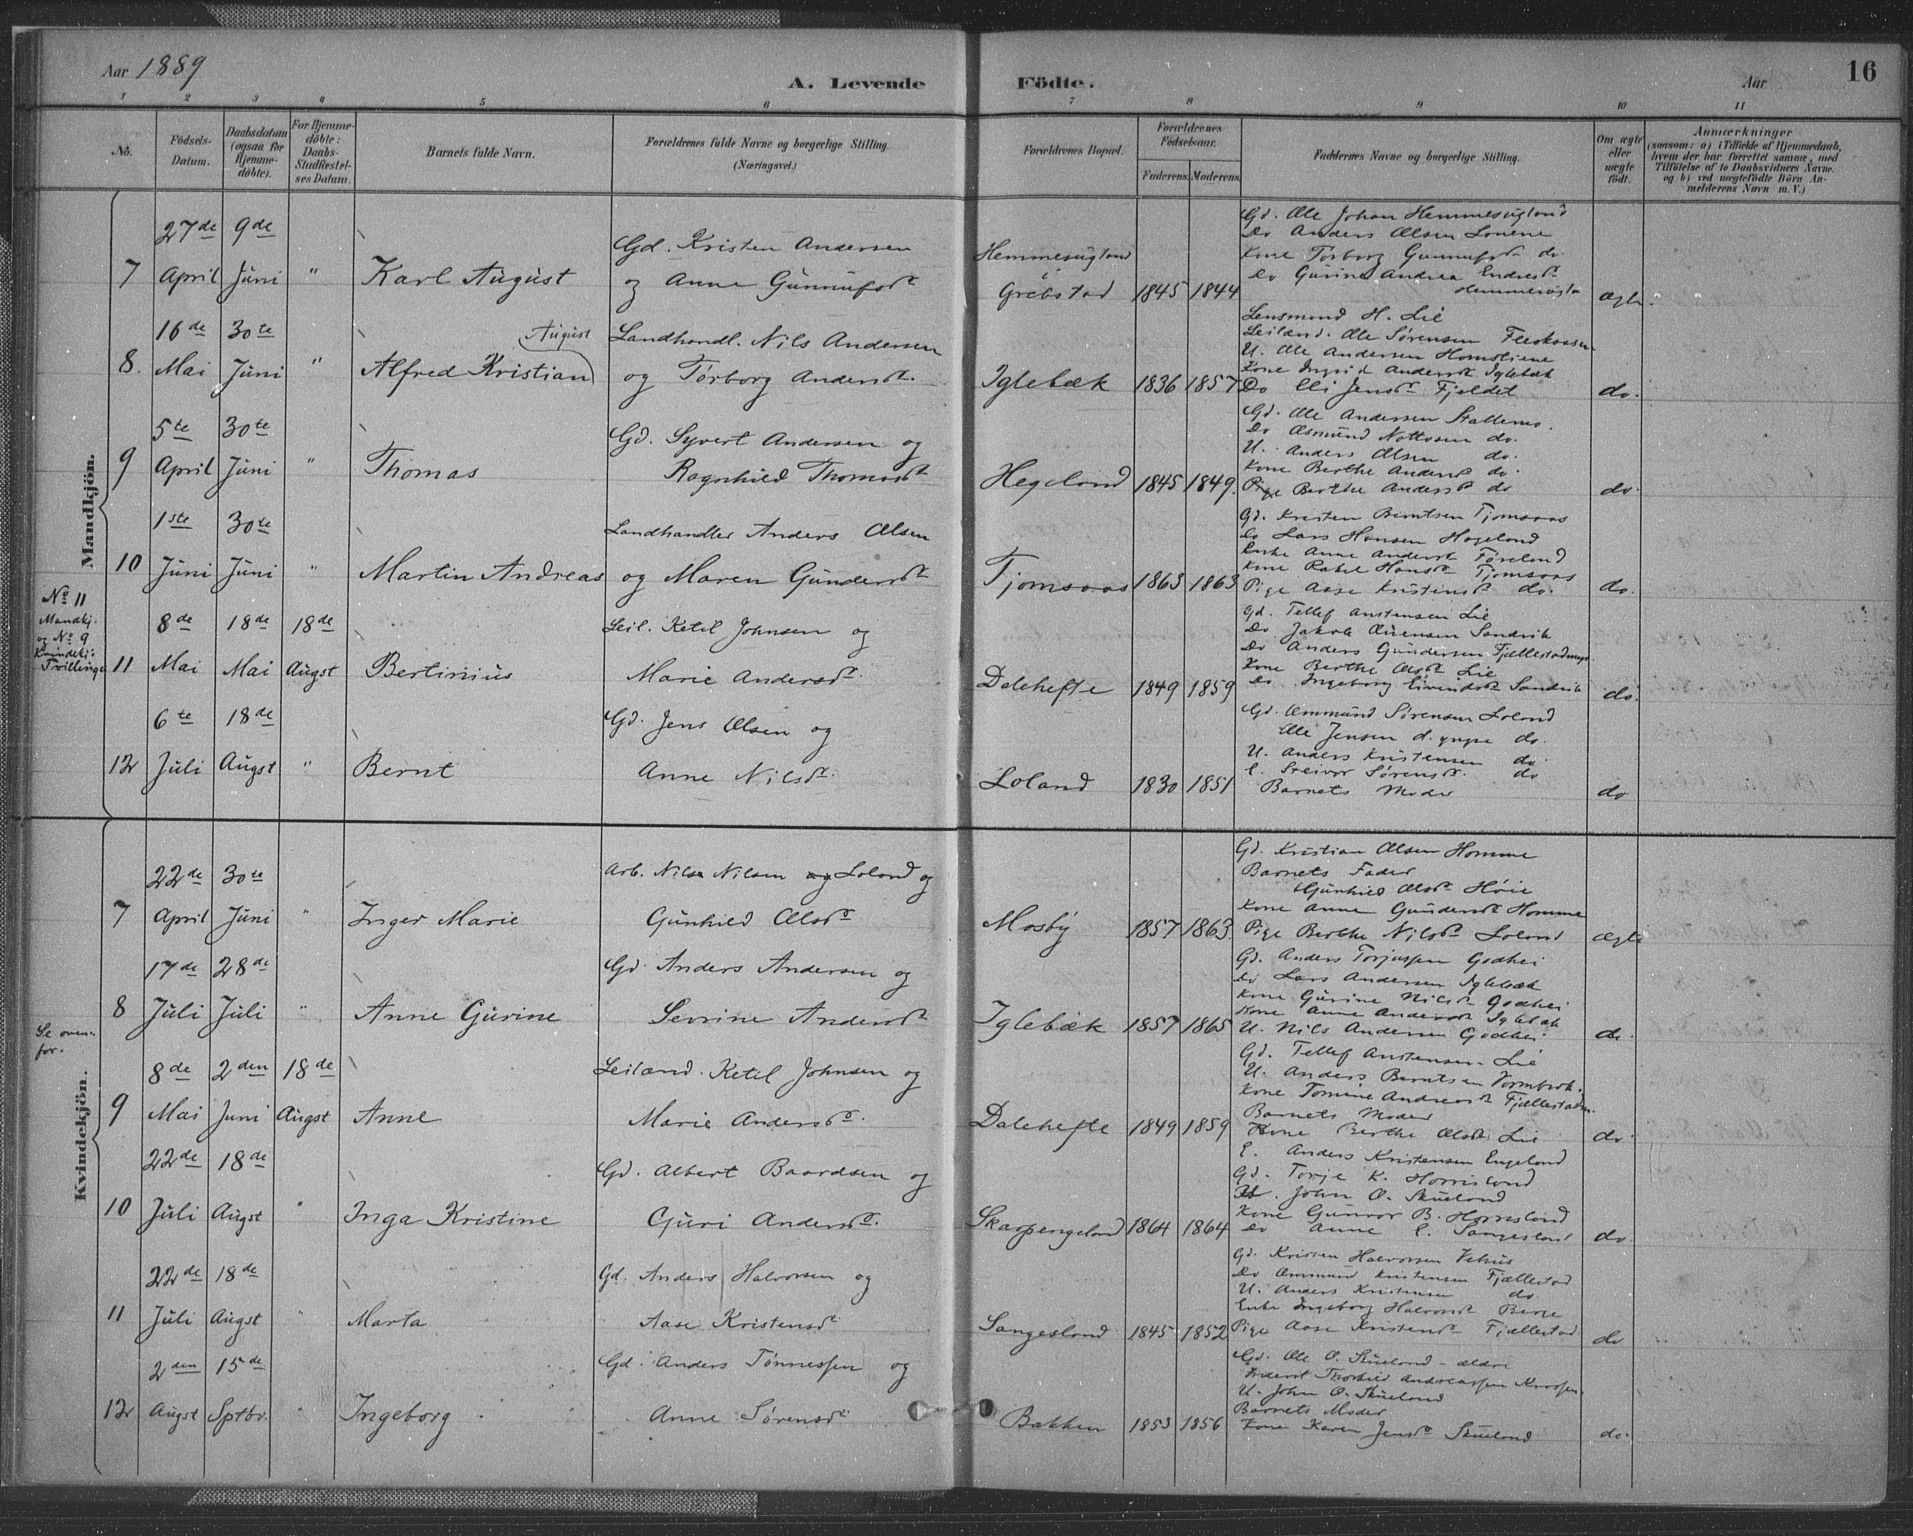 Aar 1889
A. Levende Födte.
Aar
16
1 2 3 4 5 6 7 8 9 10 11
No.
Födsels-Datum.
Daabsdatum (ogsaa for Hjemme-döbte).
For Hjemme-döbte: Daabs-Stadfæstel-ses Datum.
Barnets fulde Navn.
Forældrenes fulde Navne og borgerlige Stilling. (Næringsvei.)
Forældrenes Bopæl.
Forældrenes Födselsaar.
Faderens. Moderens.
Faddernes Navne og borgerlige Stilling.
Om ægte eller uægte födt.
Anmærkninger
(saasom: a) i Tilfælde af Hjemmedaab, hvem der har forrettet samme, med Tilföielse af to Daabsvidners Navne, og b) ved uægtefödte Börn Anmelderens Navn m. V.)
Mandkjön.
7 27de April 9de Juni " Karl August
Gd. Kristen Andersen og Anne Gunnufsd.
Hemmesugland i Grebstad 1845 1844
Gd. Ole Johan Hemmesugland
Do Anders Olsen Lonene
Kone Torborg Gunnufsd. do
Do Gurine Andrea Endresd. Hemmesugla
ægte.
8. 16de Mai 30te Juni " Alfred Kristian August
Landhandl. Nils Andersen og Torborg Andersd.
Iglebæk 1836 1857
Lensmand H. Lie
Leilænd. Ole Sørensen
U. Ole Andersen Homstiene
Kone Ingrid Andersd. Iglebæk
Do Eli Jensd. Fjeldet
do.
9 5te April 30te Juni " Thomas
Gd. Syvert Andersen og Ragnhild Thomasd.
Hegeland 1845 1849.
Gd. Ole Andersen Stallemo.
Do Asmund Nottosen do.
U. Anders Olsen do.
Kone Berthe Andersd. do.
Pige Berthe Andersd. do
do.
10 1ste Juni 30te Juni " Martin Andreas
Landhandler Anders Olsen og Maren Gundersd.
Tjomsaas 1863 1863
Gd. Kristen Berntsen Tjomsaas
Do Lars Hansen Hageland
Enke Anne Andersd. Føreland
Kone Rakel Hansd. Tjomsaas
Pige Aase Kristensd. do.
do.
No 11 Mandkj. og No 9 Kvindekj. Tvillinge
11 8de Mai 18de Mai 18de Augst Bertinius
Leil. Ketil Johnsen og Marie Andersd.
Dalehefte 1849 1859
Gd. Tellef Anstensen Lie
Do Jakob Evensen Sandvik
Do Anders Gundersen Fjællestadmyr.
Kone Berthe Olsd. Lie
Do Ingeborg Eivindsd. Sandvik
do.
12 6te Juli 18de Augst " Bernt
Gd. Jens Olsen og Anne Nilsd.
Loland 1830 1851
Gd. Ommund Sørensen Loland
Ole Jensen d. yngre do.
U. Anders Kristensen do.
E. Sørensd. do
Barnets Moder
do
Kvindekjön.
7 22de April 30te Juni " Inger Marie
Arb. Nils Nilsen Loland og Gunhild Olsd.
Mosby 1857 1863.
Gd. Kristian Olsen Homme
Barnets Fader
Gunhild Olsd. Høie
Kone Anne Gundersd. Homme
Pige Berthe Nilsd. Loland
ægte
8 17de Juli 28de Juli " Anne Gurine
Gd. Anders Andersen og Sevrine Andersd.
Iglebæk 1857 1865
Gd. Anders Torjussen Godhei
Do Lars Andersen Iglebæk
Kone Gurine Nilsd. Godhei
Kone Anne Andersd. Iglebæk
U. Nils Andersen Godhei
do.
Se oven-for.
9 8de Mai 2den Juni 18de Augst Anne
Leilænd. Ketil Johnsen og Marie Andersd.
Dalehefte 1849 1859
Gd. Tellef Anstensen Lie
U. Anders Berntsen
Kone Tomine Andreasd. Fjællestadm.
Barnets Moder
Kone Berthe Olsd. Lie
do.
10 22de Juli 18de Augst " Inga Kristine
Gd. Albert Baardsen og Guri Andersd.
Skarpengeland 1864 1864
E. Anders Kristensen Engeland
Gd. Torje K. Horrisland
U. John O. Skueland
Kone Gunvor B. Horresland
Do Anne E. Sangesland
do.
11 22de Juli 18de Augst " Marta
Gd. Anders Halvorsen og Aase Kristensd.
Sangesland 1845 1852
Gd. Kristen Halvorsen Vehus
Do Ommund Kristensen Fjællestad
U. Anders Kristensen do.
Enke Ingeborg Halvorsd. Berge
Pige Aase Kristensd. Fjællestad
do
12 2den Augst 15de Sptbr. " Ingeborg
Gd. Anders Tønnessen og Anne Sørensd.
Bakken 1853 1856
Gd. Ole O. Skueland ældre
U. John O. Skueland
Barnets Moder
Kone Karen Jensd. Skueland
do.